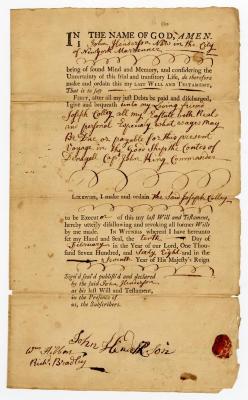 IN THE NAME OF GOD, AMEN.
I John Henderson Now in the City
of Newyork Marrener
being of sound Mind and Memory, and considering the
Uncertainty of this frail and transitory Life, do therefore
make and ordain this my LAST WILL AND TESTAMENT,
That is to say
FIRST, after all my just Debts be paid and discharged,
I give and bequeath unto my Loving friend
Joseph Colley all my Eastate both Reall
and personal Especialy what wages May
Be Due or payable for this present
Voyage in the Good Ship the Contes of
Donegall Capt John King Commander
LIKEWISE, I make and ordain the Said Joseph Colley
to be Executor of this my last Will and Testament,
hereby utterly disallowing and revoking all former Wills
by me made. IN WITNESS whereof I have hereunto
set my Hand and Seal, the tenth Day of
February in the Year of our Lord, One Thou-
sand Seven Hundred, and Sixty Eight and in the
Seventh Year of His Majesty's Reign
Sign'd seal'd publish'd and declared
by the said John Henderson
as his last Will and Testament,
in the Presence of
us, the Subscribers.
John Henderson
Wm
Richd. Bradley